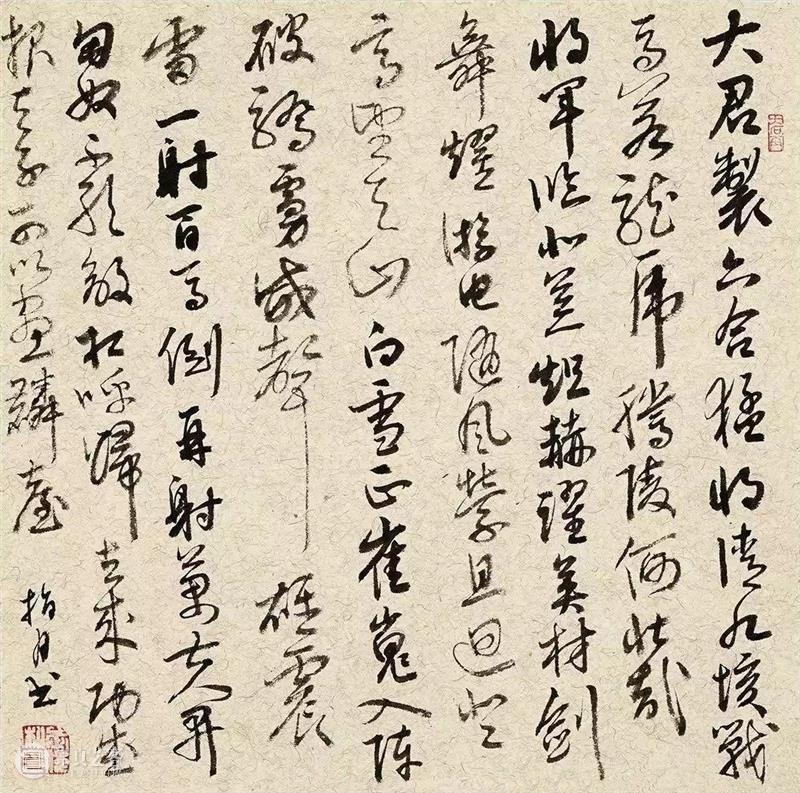 大君製六合猛将清九垓戰
馬若龍虎騰陵何壯哉
将軍臨北荒烜赫耀英材劍
舞燿游电隨風縈且迴登
高望天山白雪正崔嵬入陣
破驕虜威聲雄震
雷一射百馬倒再射萬夫開
匈奴不敢敵相呼歸去來功成
报天子可以畫麟臺 指月书